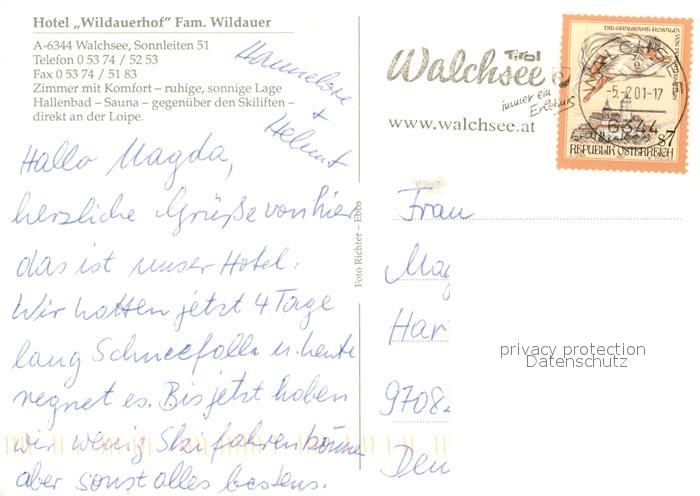 Hotel „Wildauerhof" Fam. Wildauer
A-6344 Walchsee, Sonnleiten 51
Telefon 0 53 74 / 52 53
Fax 0 53 74 / 51 83
Zimmer mit Komfort – ruhige, sonnige Lage
Hallenbad – Sauna – gegenüber den Skiliften –
direkt an der Loipe.
Hannelore
+
Helmut
Hallo Magda,
herzliche Grüße von hier
das ist unser Hotel.
Wir hatten jetzt 4 Tage
lang Schneefall u. heute
regnet es. Bis jetzt haben
wir wenig Ski fahren können
aber sonst alles bestens.
Foto Richter – Ebbs
Tirol
Walchsee
immer ein
Erlebnis
www.walchsee.at
-5.-2.01-17
6344
S7
REPUBLIK ÖSTERREICH
Frau
Mag
Har
9708
Deu
privacy protection
Datenschutz